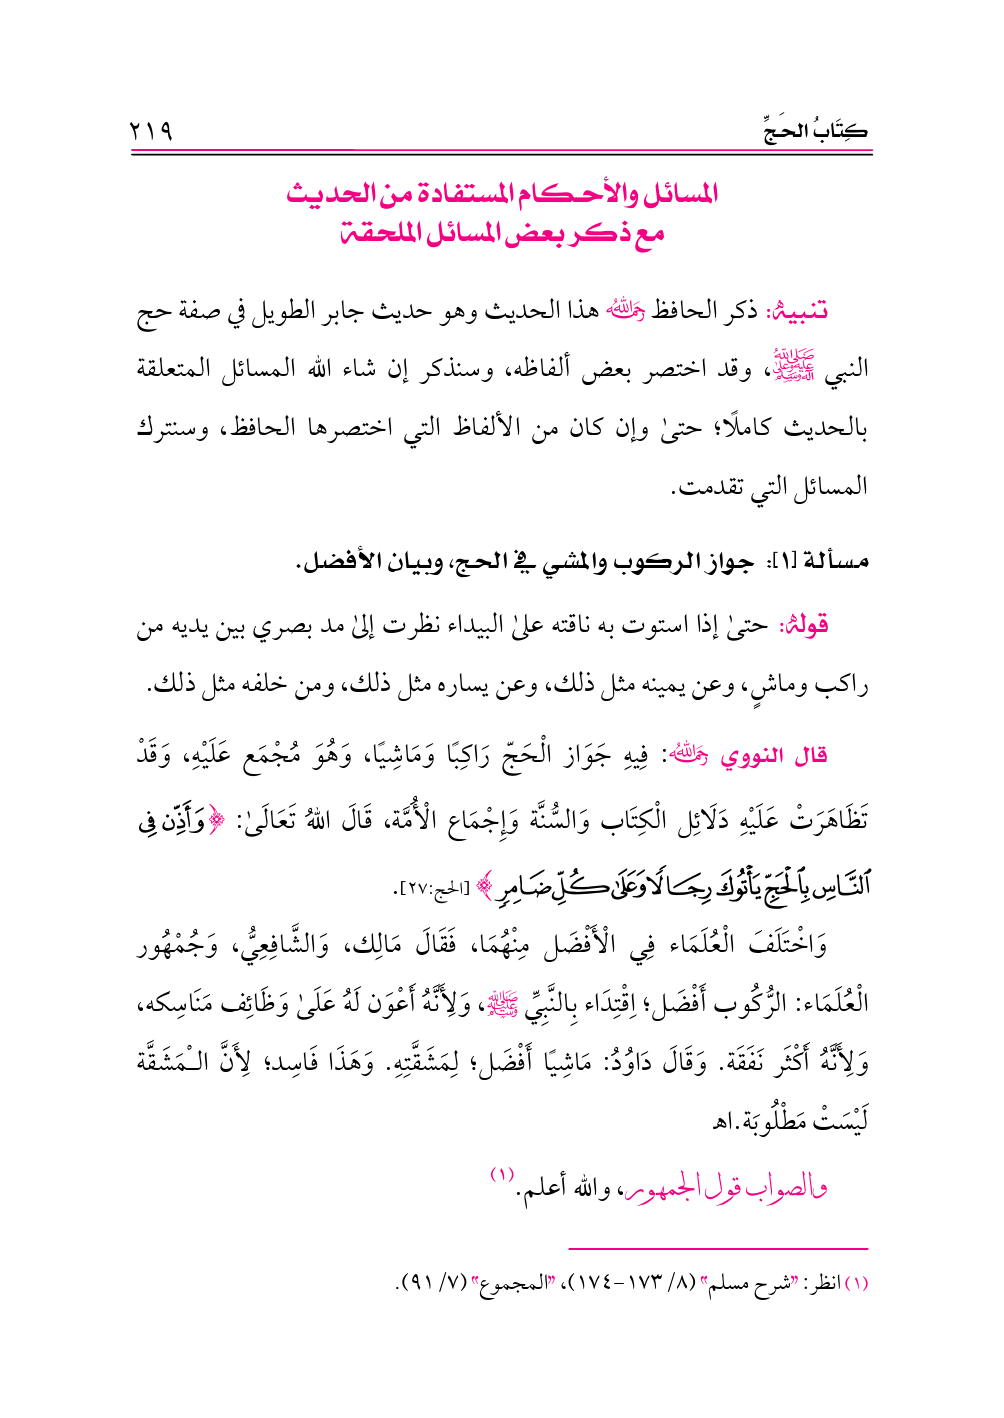 كِتَابُ الحَجِّ ٢١٩
المسائل والأحكام المستفادة من الحديث
مع ذكر بعض المسائل الملحقة
تنبيه: ذكر الحافظ رحمه الله هذا الحديث وهو حديث جابر الطويل في صفة حج
النبي ﷺ، وقد اختصر بعض ألفاظه، وسنذكر إن شاء الله المسائل المتعلقة
بالحديث كاملًا؛ حتىٰ وإن كان من الألفاظ التي اختصرها الحافظ، وسنترك
المسائل التي تقدمت.
مسألة [١]: جواز الركوب والمشي في الحج، وبيان الأفضل.
قوله: حتىٰ إذا استوت به ناقته علىٰ البيداء نظرت إلىٰ مد بصري بين يديه من
راكب وماشٍ، وعن يمينه مثل ذلك، وعن يساره مثل ذلك، ومن خلفه مثل ذلك.
قال النووي رحمه الله: فِيهِ جَوَاز الْحَجّ رَاكِبًا وَمَاشِيًا، وَهُوَ مُجْمَع عَلَيْهِ، وَقَدْ
تَظَاهَرَتْ عَلَيْهِ دَلَائِل الْكِتَاب وَالسُّنَّة وَإِجْمَاع الْأُمَّة، قَالَ اللهُ تَعَالَىٰ: ﴿وَأَذِّن فِى
ٱلنَّاسِ بِٱلْحَجِّ يَأْتُوكَ رِجَالًا وَعَلَىٰ كُلِّ ضَامِرٍ﴾ [الحج:٢٧].
وَاخْتَلَفَ الْعُلَمَاء فِي الْأَفْضَل مِنْهُمَا، فَقَالَ مَالِك، وَالشَّافِعِيُّ، وَجُمْهُور
الْعُلَمَاء: الرُّكُوب أَفْضَل؛ اِقْتِدَاء بِالنَّبِيِّ ﷺ، وَلِأَنَّهُ أَعْوَن لَهُ عَلَىٰ وَظَائِف مَنَاسِكه،
وَلِأَنَّهُ أَكْثَر نَفَقَة. وَقَالَ دَاوُدُ: مَاشِيًا أَفْضَل؛ لِمَشَقَّتِهِ. وَهَذَا فَاسِد؛ لِأَنَّ الْـمَشَقَّة
لَيْسَتْ مَطْلُوبَة.اهـ
والصواب قول الجمهور، والله أعلم.(١)
(١) انظر: "شرح مسلم" (٨/ ١٧٣-١٧٤)، "المجموع" (٧/ ٩١).